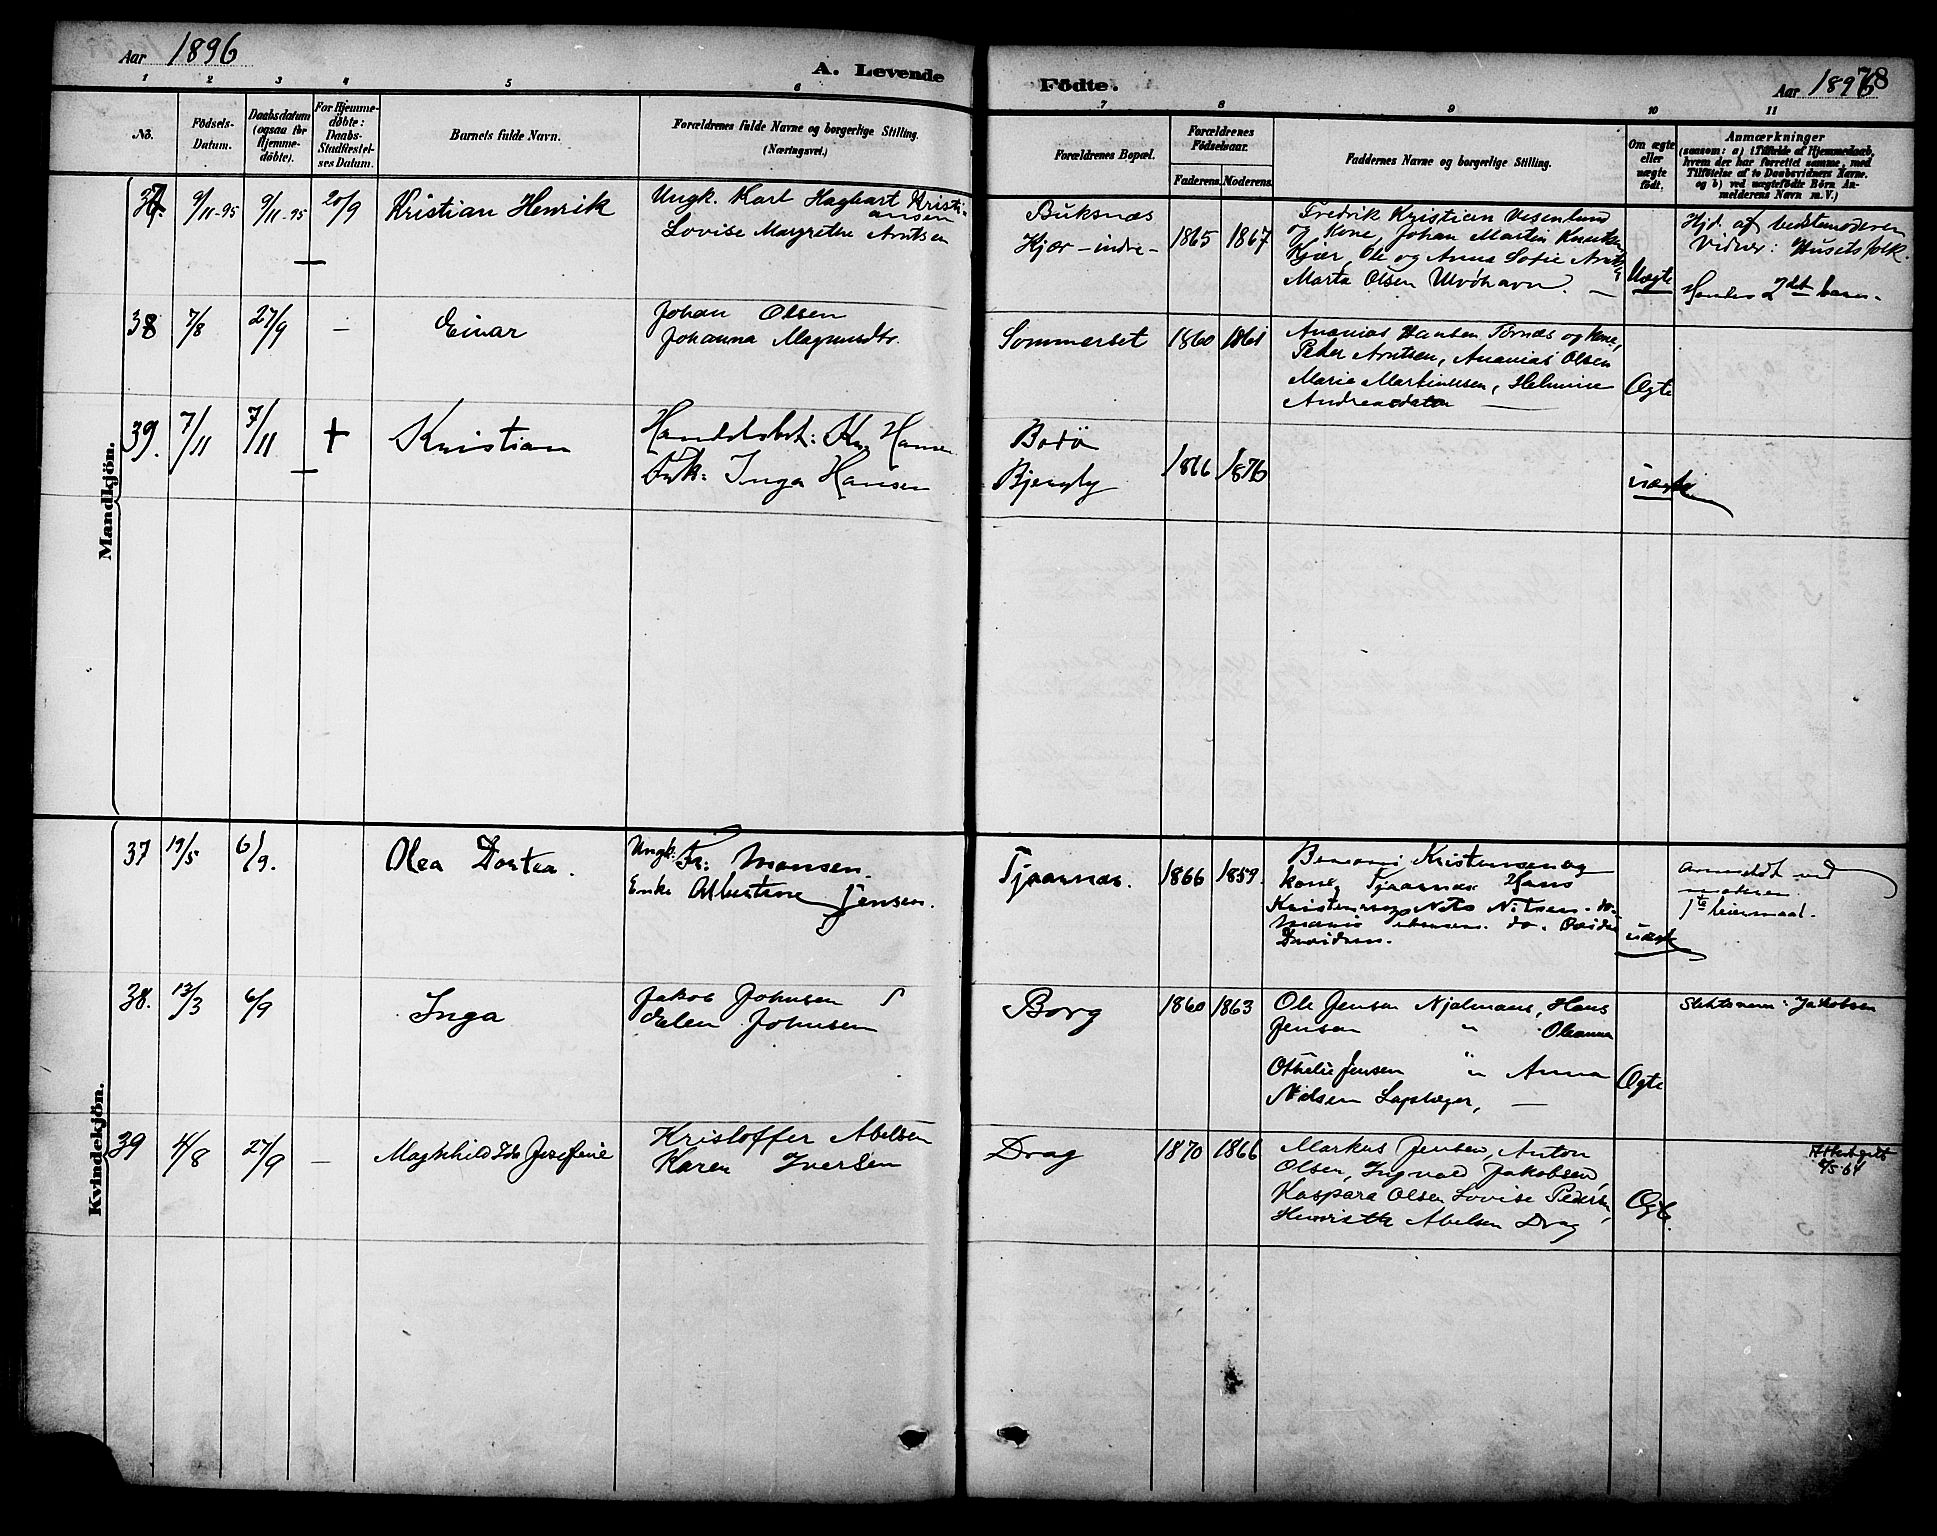 Aar 1896
A. Levende
Födte.
Aar 1896
78
1 2 3 4 5 6
7 8 9 10 11
No.
Födsels-
Datum.
Daabsdatum
(ogsaa for
Hjemme-
döbte).
For Hjemme-
döbte:
Daabs-
Stadfæstel-
ses Datum.
Barnets fulde Navn.
Forældrenes fulde Navne og borgerlige Stilling.
(Næringsvei.)
Forældrenes Bopæl.
Forældrenes
Födselsaar.
Faderens. Moderens.
Faddernes Navne og borgerlige Stilling.
Om ægte
eller
uægte
födt.
Anmærkninger
(saasom: a) i Tilfælde af Hjemmedaab,
hvem der har forrettet samme, med
Tilföielse af to Daabsvidners Navne.
og b) ved uægtefödte Börn An-
melderens Navn m. V.)
Mandkjön.
37. 9/11-95 9/11-95 20/9 Kristian Henrik
Ungk. Karl Hagbart Kristi-
ansen
Lovise Margrethe Arntsen
Buksnæs
Kjær - indre -
1865 1867
Fredrik Kristian Vesenlund
og Kone, Johan Martin Knutsen
Kjær, Ole og Anna Sofie
Marta Olsen Ulvöhavn. —
Uægte
Hjd. af bedstemoderen
Vidner: Husets folk.
Hendes 2det barn.
38 7/8 27/9 — Einar
Johan Olsen
Johanna Magnusdtr.
Sommerset 1860 1861
Ananias Hansen Törnæs og kone,
Peder Arntsen, Ananias Olsen
Marie Martinussen, Helmine
Andreasdatter —
Ægte
39. 7/11 7/11 + Kristian
Handelsbet: Kr. Hansen
Frk: Inga Hansen
Bodö
1866 1876
uægte
Kvindekjön.
37 19/5 6/9. Olea Dortea.
Ungk: Fr: Monsen.
Enke Albertine Jensen.
Tjaarnæs. 1866 1859.
Benoni Kristensen og
kone, Tjaarnæs Hans
Kristensen, Nils Nilsen. do.
do.
Davidsen.
uægte
Anmeldt ved
moderen.
1ste leiermaal.
38. 13/3 6/9 Inga
Jakob Johnsen
Elen Johnsen
Borg 1860 1863
Ole Jensen Njalmans, Hans
Jensen " Oleanna
Othelie Jensen " Anna
Nilsen Lapstæger, —
Ægte
Slektsnavn: Jakobsen
39 4/8 27/9 — Maghhild Ida Josefine
Kristoffer Abelsen
Karen Iversen
Drag 1870 1866
Markus Jensen, Anton
Olsen, Ingvald Jakobsen,
Kaspara Olsen Lovise Pedersen,
Henriette Abelsen Drag
Ægte
Attest gitt